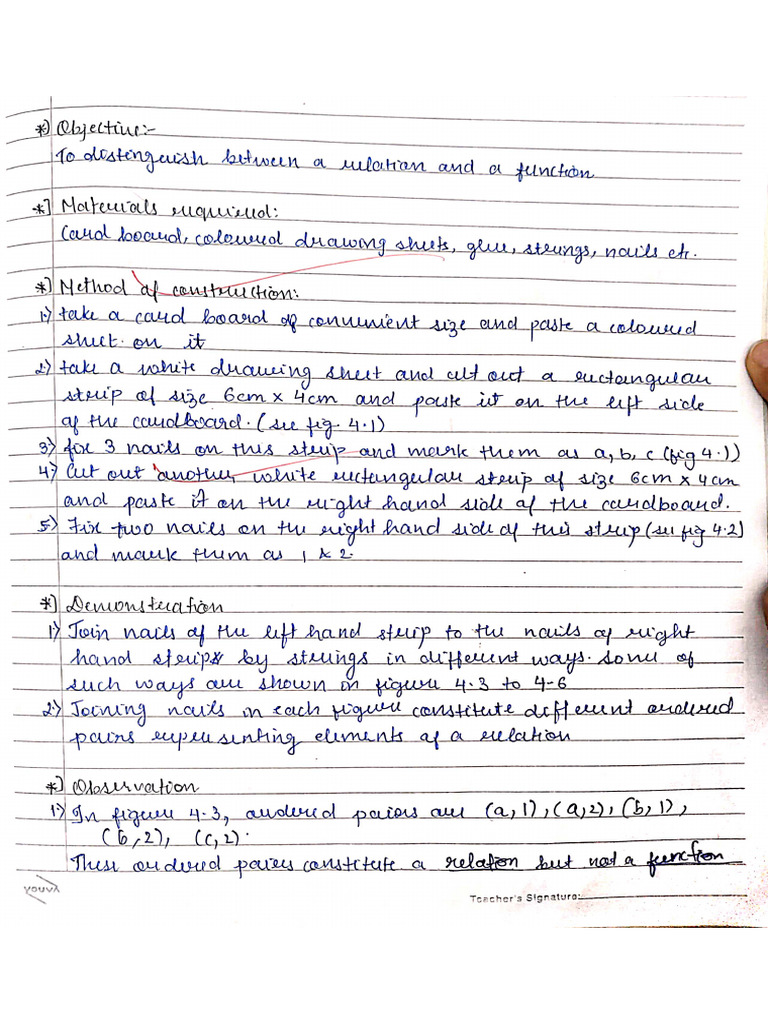 *) Objective:-
To distinguish between a relation and a function
*] Materials required:
Card board, coloured drawing sheets, glue, strings, nails etc.
*] Method of construction:
1) take a card board of convenient size and paste a coloured
sheet on it
2) take a white drawing sheet and cut out a rectangular
strip of size 6cm x 4cm and paste it on the left side
of the cardboard. (see fig 4.1)
3) fix 3 nails on this strip and mark them as a, b, c (fig 4.1))
4) Cut out another white rectangular strip of size 6cm x 4cm
and paste it on the right hand side of the cardboard.
5) Fix two nails on the right hand side of this strip (see fig 4.2)
and mark them as 1 & 2.
*] Demonstration
1) Join nails of the left hand strip to the nails of right
hand strips by strings in different ways. Some of
such ways are shown in figure 4.3 to 4-6
2) Joining nails in each figure constitute different ordered
pairs representing elements of a relation
*] Observation
1) In figure 4.3, ordered pairs are (a,1), (a,2), (b,1),
(b,2), (c,2).
These ordered pairs constitute a relation but not a function
YOUVA
Teacher's Signature: